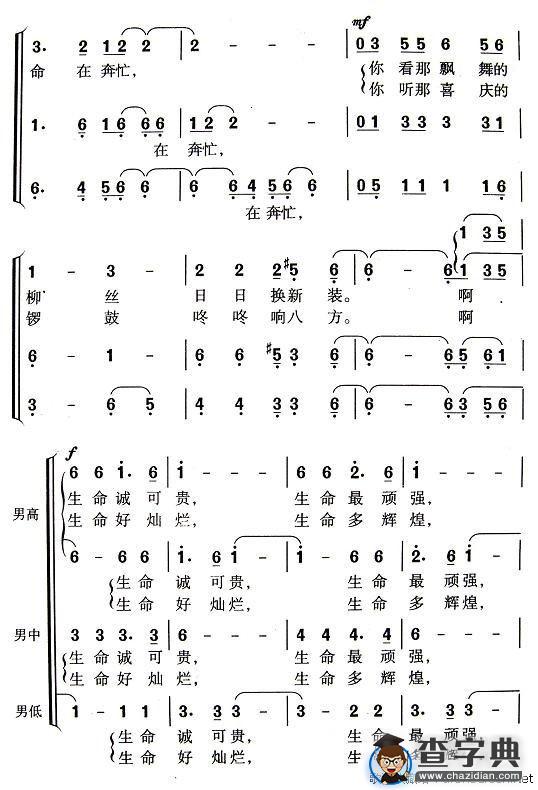 mf
3. 2 1 2 2 2 | 2 - - - | 0 3 5 5 6 5 6
命 在奔忙, 你 看那飘 舞的
你 听那喜 庆的
1. 6 1 6 6 6 | 1 2 2 - - | 0 1 3 3 3 3 1
在奔忙,
6. 4 5 6 6 | 6 6 4 5 6 6 | 0 5 1 1 1 1 6
在奔忙,
1 3 5
1 - 3 - | 2 2 2 #5 6 | 6 - 6 1 3 5
柳 丝 日 日 换新装。 啊
锣 鼓 咚 咚 响八方。 啊
6 - 1 - | 6 6 #5 3 6 | 6 - 6 5 6 1
3 - 6 5 | 4 4 3 3 6 | 6 - 6 3 5 6
f
6 6 1. 6 | 1 - - - | 6 6 2. 6 | 1 - - -
生命诚可贵, 生命最顽强,
生命好灿烂, 生命多辉煌,
男高
6 - 6 6 | 1. 6 1 1 | 1 - 6 6 | 2. 6 1 1
生命 诚可贵, 生命 最顽强,
生命 好灿烂, 生命 多辉煌,
男中 3 3 3. 3 | 6 - - - | 4 4 4. 4 | 6 - - -
生命诚可贵, 生命最顽强,
生命好灿烂, 生命多辉煌,
男低 1 - 1 1 | 3. 3 3 3 | 3 - 2 2 | 3. 3 3 -
生命 诚可贵, 生命 最顽强
生命 好灿烂, 生
查字典
www.chazidian.com